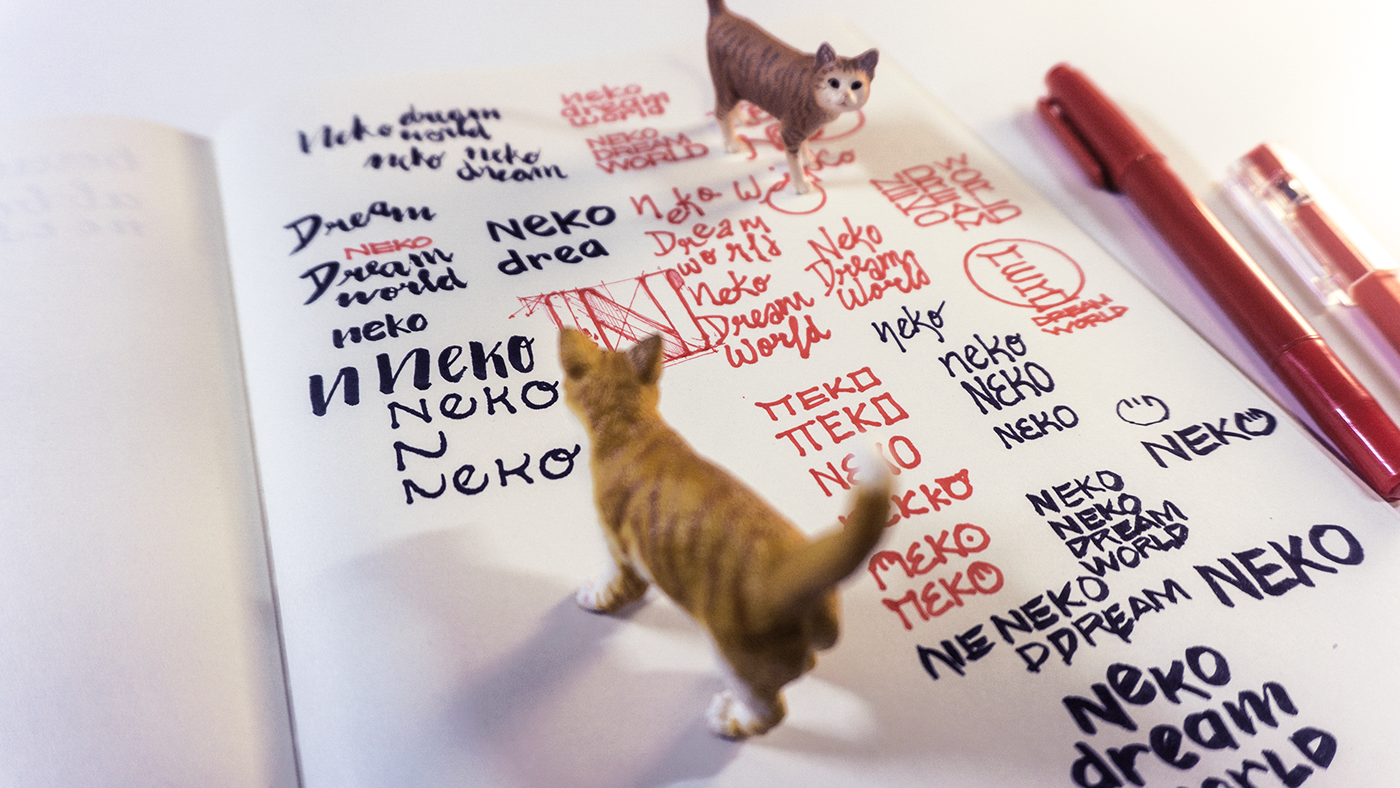 Neko dream
world
neko neko
dream
neko
dream
world
NEKO
DREAM
WORLD
Dream
NEKO
Dream
world
neko
n neko
neko
N
neko
NEKO
drea
Neko
Dream
world
Neko
Dream
World
Neko
Dream
World
WORLD
DREAM
WORLD
neko
neko
NEKO
NEKO
NEKO
NEKO
NEKO
NEKO
NEKKO
MEKO
MEKO
NEKO
NEKO
DREAM
WORLD
NEKO
NIE NEKO
DDREAM
NEKO
dream
world